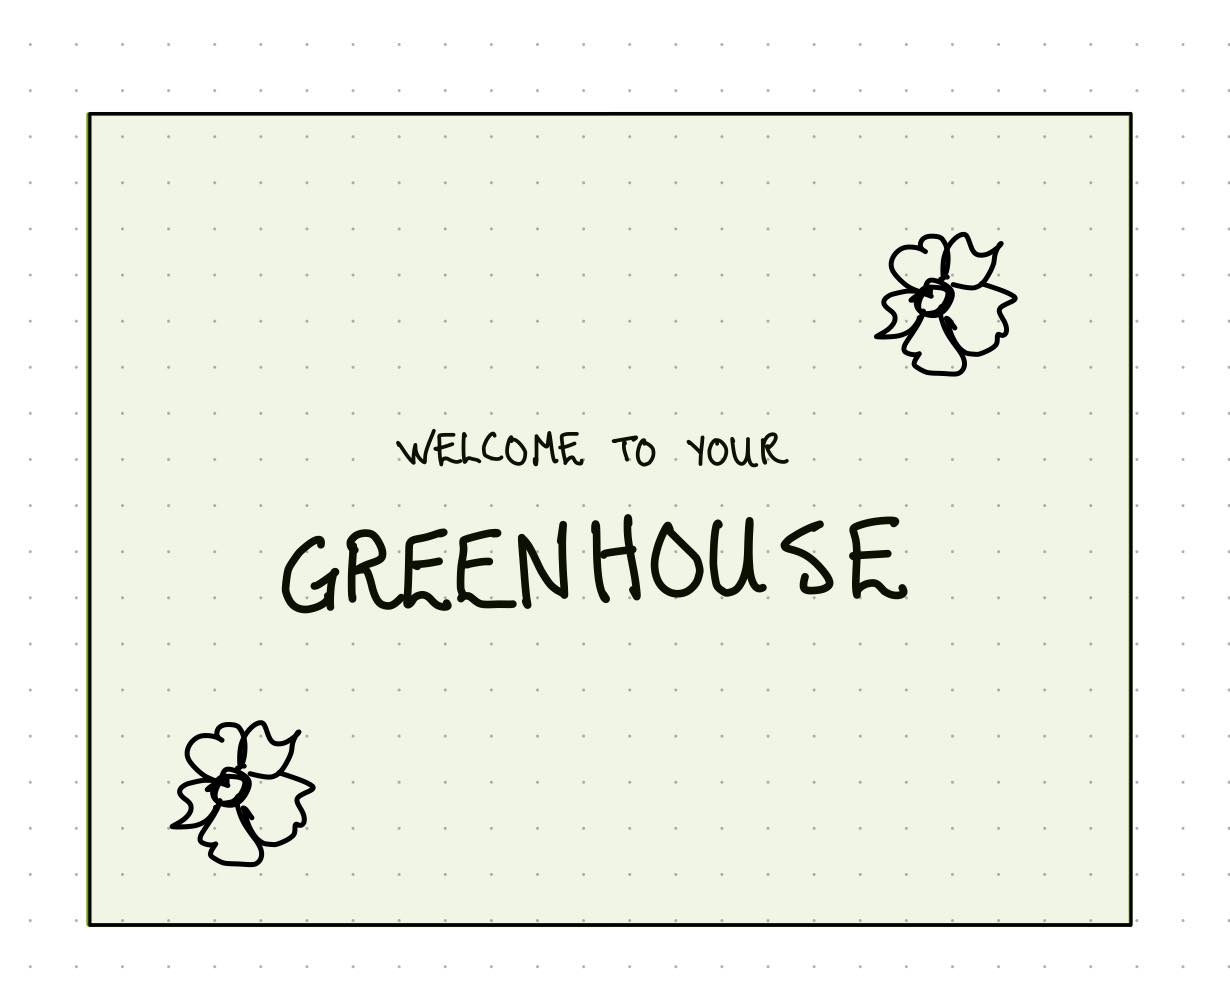 WELCOME TO YOUR
GREENHOUSE